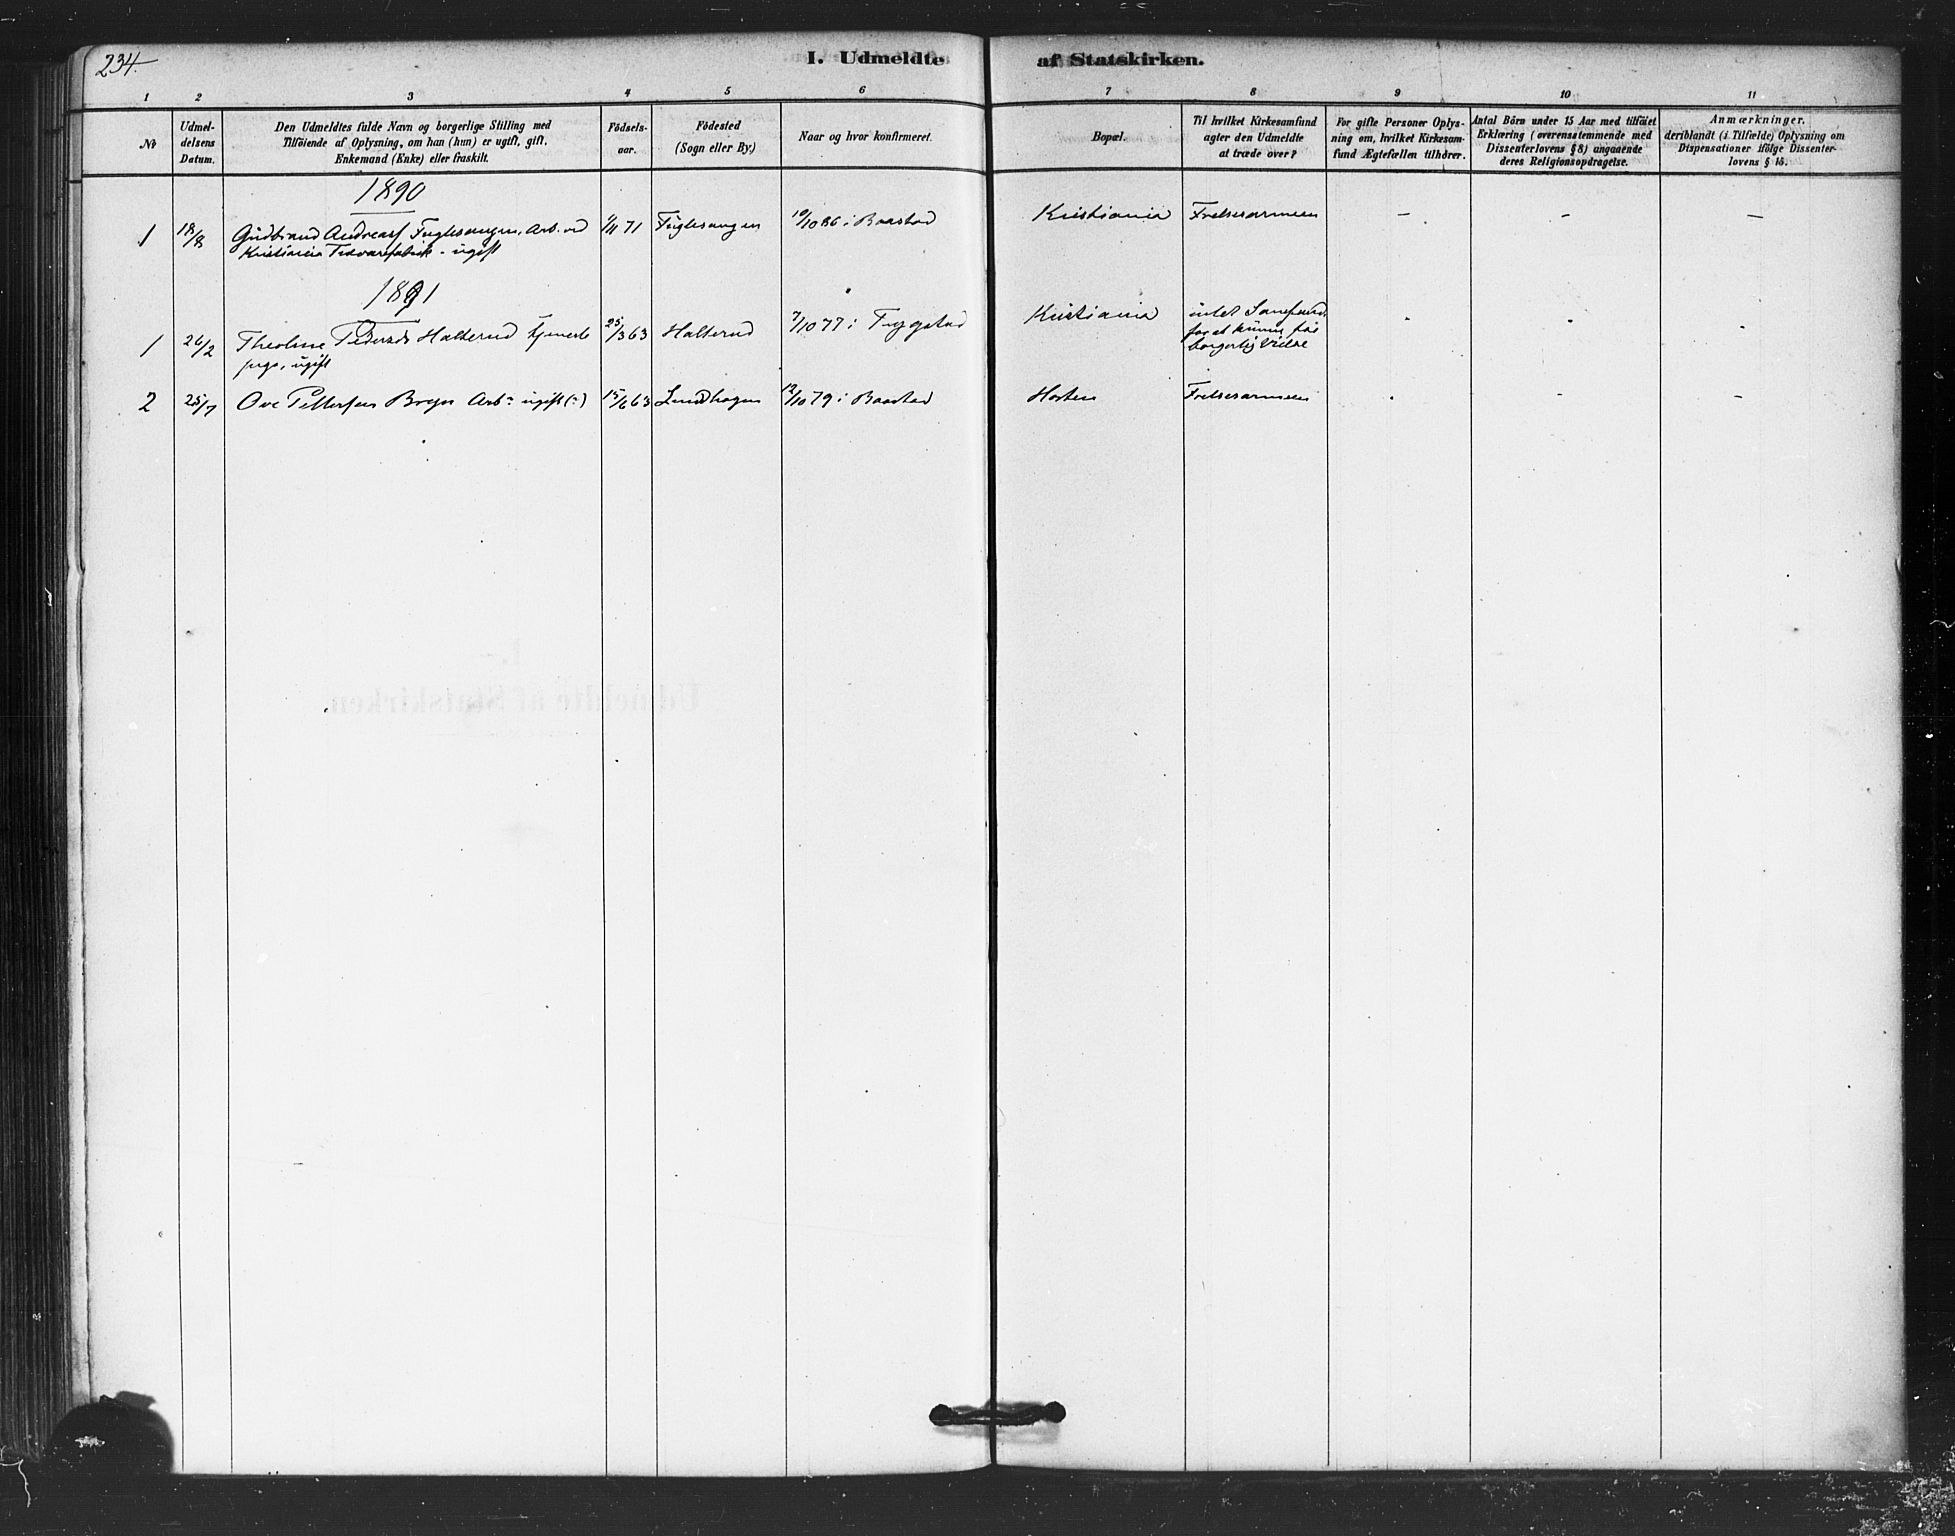 234.
I. Udmeldte af Statskirken.
1 2 3 4 5 6 7 8 9 10 11
No
Udmel-
delsens
Datum.
Den Udmeldtes fulde Navn og borgerlige Stilling med
Tilföiende af Oplysning, om han (hun) er ugift, gift.
Enkemand (Enke) eller fraskilt.
Födsels-
aar.
Födested
(Sogn eller By.)
Naar og hvor konfirmeret.
Bopæl.
Til hvilket Kirkesamfund
agter den Udmeldte
at træde over?
For gifte Personer Oplys-
ning om, hvilket Kirkesam-
fund Ægtefællen tilhører.
Antal Börn under 15 Aar med tilföiet
Erklæring (overensstemmende med
Dissenterlovens § 8) angaaende
deres Religionsopdragelse.
Anmærkninger.
deriblandt (i Tilfælde) Oplysning om
Dispensationer ifölge Dissenter-
lovens § 15.
1890
1 18/8 Gudbrand Andreas Fuglesangen, Arb. ved 71 Fuglesangen 10/10 86 i Baastad Kristiania Frelsesarmeen - - -
Kristiania - ugift
1891
1 26/2 Theoline Pedersd. Halterud Tjeneste 25/3 63 Halterud 7/10 77 i Tryggstad Kristiania intet Samfund,
pige, ugift
for at kunne faa
borgerlig Vielse
2 25/7 Ove Pettersen Bryn Arbr ugift (?) 15/6 63 Lundhagen 12/10 79 i Baastad Horten Frelsesarmeen - - -